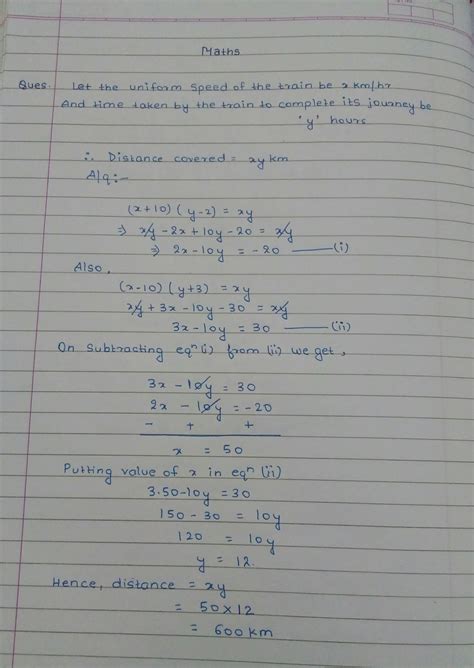 Maths
Ques. Let the uniform speed of the train be x km/hr
And time taken by the train to complete its journey be
'y' hours
∴ Distance covered = xy km
A/q:-
(x+10)(y-2) = xy
⇒ xy - 2x + 10y - 20 = xy
⇒ 2x - 10y = -20 —— (i)
Also,
(x-10)(y+3) = xy
xy + 3x - 10y - 30 = xy
3x - 10y = 30 —— (ii)
On subtracting eqn (i) from (ii) we get,
3x - 10y = 30
2x - 10y = -20
- + +
x = 50
Putting value of x in eqn (ii)
3.50-10y = 30
150 - 30 = 10y
120 = 10y
y = 12.
Hence, distance = xy
= 50 x 12
= 600 km